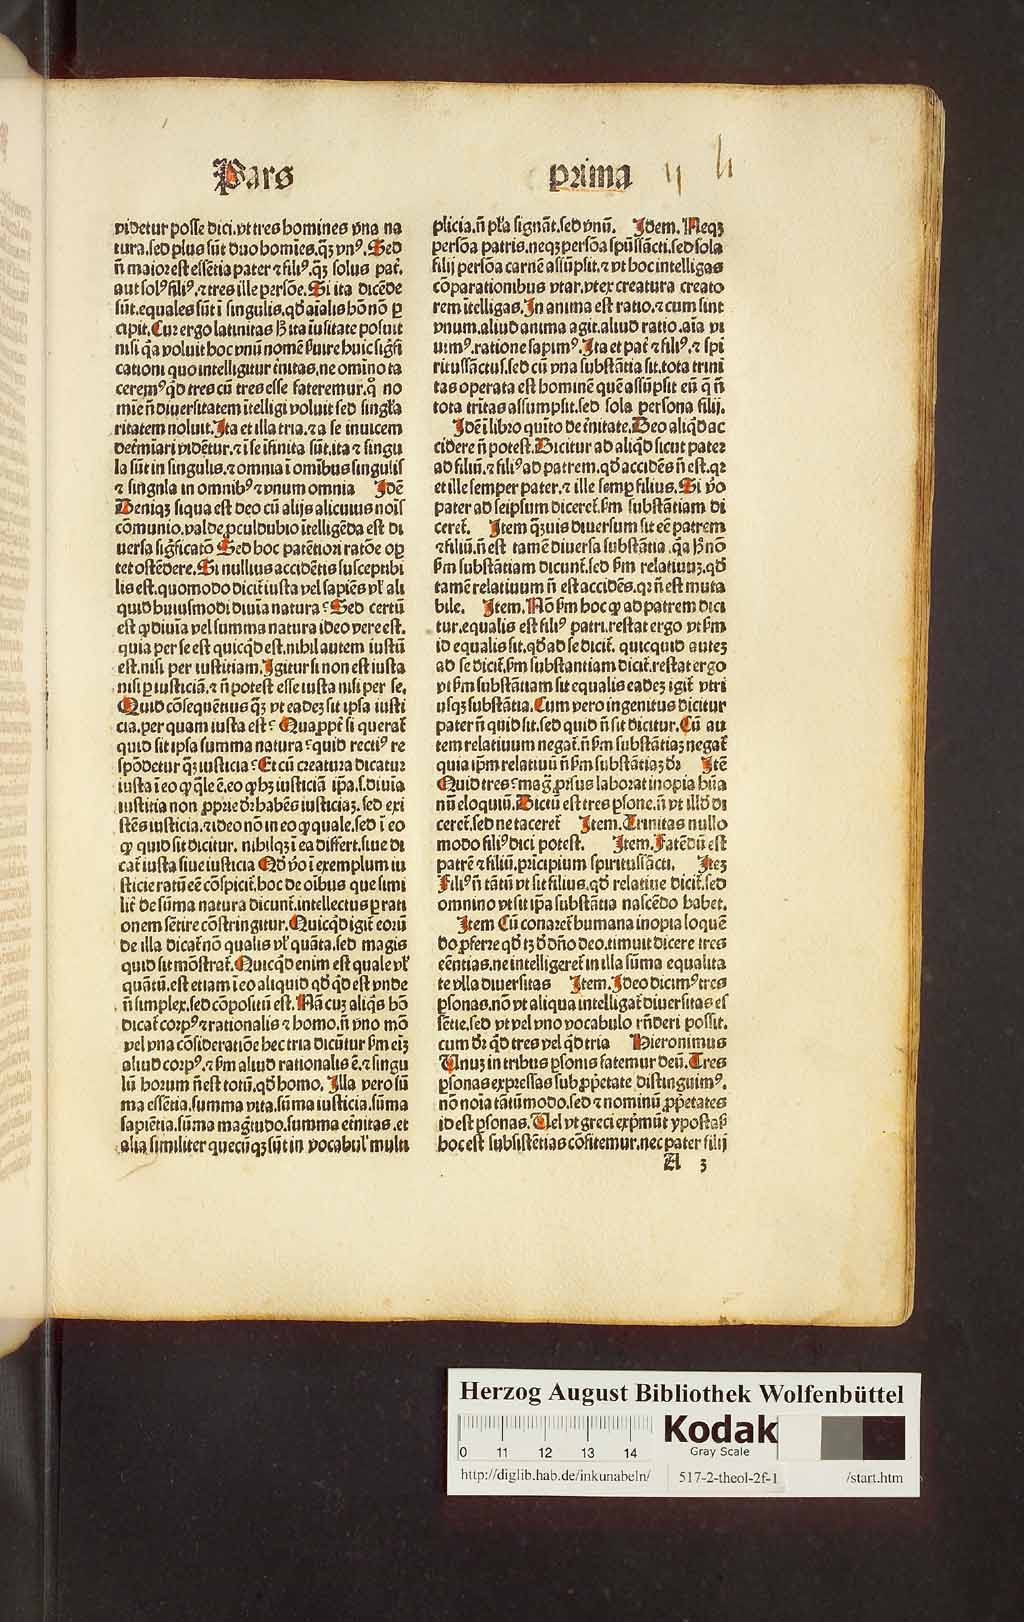 Pars prima
videtur posse dici. vt tres homines vna na
tura. sed plus sūt duo homīes. q̃ʒ vnꝰ. Sed
n̄ maior est essētia pater ⁊ filiꝰ. q̃ʒ solus pat̄.
aut solꝰ filiꝰ. ⁊ tres ille persōe. Si ita dicēde
sūt. equales sūt ī singulis. qd̓ aīalis hō nō ꝑ
cipit. Cur ergo latinitas hͦ ita īusitate posuit
nisi q̇a voluit hoc vnū nomē ẜuire huic sig̓fi
cationi quo intelligitur t̓nitas. ne omīno ta
ceremꝰ q̓d tres cū tres esse fateremur. q̊ no
mīe n̄ diuersitatem ītelligi voluit sed singl̓a
ritatem noluit. Ita et illa tria. ⁊ a se inuicem
det̓mīari vidētur. ⁊ ī se īfinita sūt. ita ⁊ singu
la sūt in singulis. ⁊ omnia ī omībus singulis
⁊ singnla in omnibꝰ ⁊ vnum omnia Idē
Deniqʒ siqua est deo cū alijs alicuius nois̄
cōmunio. valde ꝓculdubio ītelligēda est di
uersa sig̓ficatō Sed hoc patētiori ratōe opꝫ
tet ostēdere. Si nullius accidētis susceptibi
lis est. quomodo dicit̄ iusta vel sapiēs vl̓ ali
quid huiusmodi diuīa natura? Sed certū
est ꝙ diuīa vel summa natura ideo vere est.
quia per se est quicq̓d est. nihil autem iustū
est. nisi per iustitiam. Igitur si non est iusta
nisi ꝑ iusticiā. ⁊ n̄ potest esse iusta nisi per se.
Quid cōsequētius q̃ʒ vt eadeʒ sit ipsa iusti
cia. per quam iusta est? Quapropt̓ si querat̄
quid sit ipsa summa natura? quid rectiꝰ re
spōdetur q̃ʒ iusticia? Et cū creatura dicatur
iusta ī eo ꝙ q̄le ē. eo ꝙ hʒ iusticiā ip̄a. s. diuīa
iustitia non ꝓprie dr̄ habēs iusticiaʒ. sed exi
stēs iusticia. ⁊ ideo nō in eo ꝙ quale. sed ī eo
ꝙ quid sit dicitur. nihilqʒ ī ea differt. siue di
cat̄ iusta siue iusticia Qd̓ vo̓ ī exemplum iu
sticie ratū eē cōspicit̄. hoc de oībus que simi
lit̓ de sūma natura dicunt̄. intellectus ꝑ rati
onem sētire cōstringitur. Quicq̓d igit̄ eorū
de illa dicat̄ nō qualis vl̓ quāta. sed magis
quid sit mōstrat̄. Quicq̓d enim est quale vl̓
quātū. est etiam ī eo aliquid qd̓ q̓d est vnde
n̄ simplex. sed cōpositū est. Nā cuʒ aliq̓s hō
dicat̄ corpꝰ ⁊ rationalis ⁊ homo. n̄ vno mō
vel vna cōsideratiōe hec tria dicūtur ẜm eiʒ
aliud corpꝰ. ⁊ ẜm aliud rationalis ē. ⁊ singu
lū horum n̄ est totū. qd̓ homo. Illa vero sū
ma essētia. summa vita. sūma iusticia. sūma
sapiētia. sūma mag̓tudo. summa et̓nitas. et
alia similiter quecūqʒ sūt in vocabul̓ multi
plicia. n̄ pl̓a signāt. sed vnū. Idem. Neqʒ
persōa patris. neqʒ persōa spūssācti. sed sola
filij persōa carnē assūpsit. ⁊ vt hoc intelligas
cōparationibus vtar. vt ex creatura creato
rem ītelligas. In anima est ratio. ⁊ cum sint
vnum. aliud anima agit. aliud ratio. aīa vi
uimꝰ. ratione sapimꝰ. Ita et pat̓ ⁊ filiꝰ. ⁊ spi
ritussāctus. sed cū vna substātia sit. tota trini
tas operata est hominē quē assūpsit eū q̇ n̄
tota trītas assumpsit. sed sola persona filij.
Idē ī libro quīto de t̓nitate. Deo aliq̓d ac
cidere n̄ potest. Dicitur ad aliq̓d sicut pater
ad filiū. ⁊ filiꝰ ad patrem. qd̓ accidēs n̄ est. qꝛ
et ille semper pater. ⁊ ille semꝑ filius. Si vo̓
pater ad seipsum diceret̄. ẜm substātiam di
ceret̄. Item q̃ʒuis diuersum sit eē patrem
⁊ filiū. n̄ est tamē diuersa substātia. q̇a hͦ nō
ẜm substātiam dicunt̄. sed ẜm relatiuuʒ. qd̓
tamē relatiuum n̄ est accidēs. qꝛ n̄ est muta
bile. Item. Nō ẜm hoc ꝙ ad patrem dici
tur. equalis est filiꝰ patri. restat ergo vt ẜm
id equalis sit. qd̓ ad se dicit̄. quicquid auteʒ
ad se dicit̄. ẜm substantiam dicit̄. restat ergo
vt ẜm substātiam sit equalis eadeʒ igit̄ vtri
usqʒ substātia. Cum vero ingenitus dicitur
pater n̄ quid sit. sed quid n̄ sit dicitur. Cū au
tem relatiuum negat̄. n̄ ẜm substātiaʒ negat̄
quia ip̄m relatiuū n̄ ẜm substātiaʒ dr̄ Itē
Quid tres? mag̓ prsius laborat inopia hūa
nū eloquiū. Dictū est tres ꝑsone. n̄ vt illd̓ di
ceret̄. sed ne taceret̄ Item. Trinitas nullo
modo filiꝰ dici potest. Item. Fatēdū est
patrē ⁊ filiū. pricipium spiritussācti. Iteʒ
Filiꝰ n̄ tātū vt sit filius. qd̓ relatiue dicit̄. sed
omnino vt sit ip̄a substātia nascēdo habet.
Item Cū conaret̄ humana inopia loquē
do ꝓferre qd̓ tʒ d̓ dn̄o deo. timuit dicere tres
eēntias. ne intelligeret̄ in illa sūma equalita
te vlla diuersitas Item. Ideo dicimꝰ tres
ꝑsonas. nō vt aliqua intelligat̄ diuersitas es
sētie. sed vt vel vno vocabulo rn̄deri possit.
cum dr̄ q̓d tres vel q̓d tria Hieronimus
Unuʒ in tribus ꝑsonis fatemur deū. Tres
ꝑsonas expressas sub ꝓp̄etate distinguimꝰ.
nō noīa tātūmodo. sed ⁊ nominū ꝓp̄etates
id est ꝑsonas. Uel vt greci exp̓mūt ypostas̄
hoc est subsistētias cōfitemur. nec pater filij
A 3
Herzog August Bibliothek Wolfenbüttel
0 11 12 13 14
Kodak
Gray Scale
http://diglib.hab.de/inkunabeln/ 517-2-theol-2f-1 /start.htm